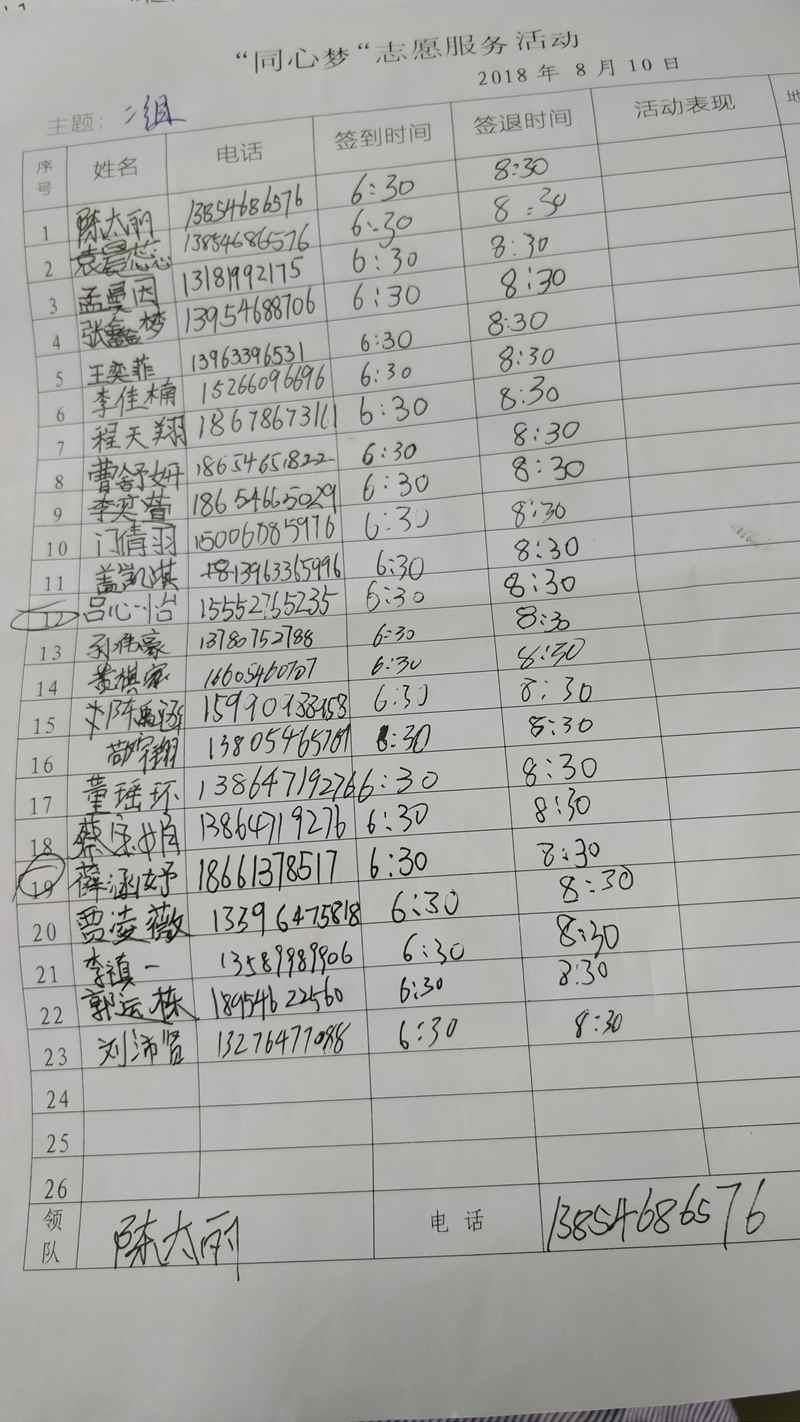 “同心梦“志愿服务活动
2018 年 8 月 10 日
主题：二组
序号 姓名 电话 签到时间 签退时间 活动表现
1 陈太丽 13854686576 6:30 8:30
2 袁晨蕊 13854686576 6:30 8:30
3 孟曼因 13181992175 6:30 8:30
4 张鑫梦 13954688706 6:30 8:30
5 王奕菲 13963396531 6:30 8:30
6 李佳楠 15266096696 6:30 8:30
7 程天翔 18678673111 6:30 8:30
8 曹舒妍 18654651822 6:30 8:30
9 李奕萱 18654665029 6:30 8:30
10 门倩羽 15006085976 6:30 8:30
11 盖凯淇 13963365996 6:30 8:30
12 吕心怡 15552765235 6:30 8:30
13 13780752788 6:30 8:30
14 黄祺 16605460707 6:30 8:30
15 6:30 8:30
16 翔 13805465701 6:30 8:30
17 董瑶环 13864719276 6:30 8:30
18 蔡 13864719276 6:30 8:30
19 薛涵妤 18661378517 6:30 8:30
20 贾凌薇 13396475818 6:30 8:30
21 李禛一 13589989906 6:30 8:30
22 郭运栋 18954622560 6:30 8:30
23 刘沛贤 13276477088 6:30 8:30
24
25
26
领队 陈太丽 电话 13854686576